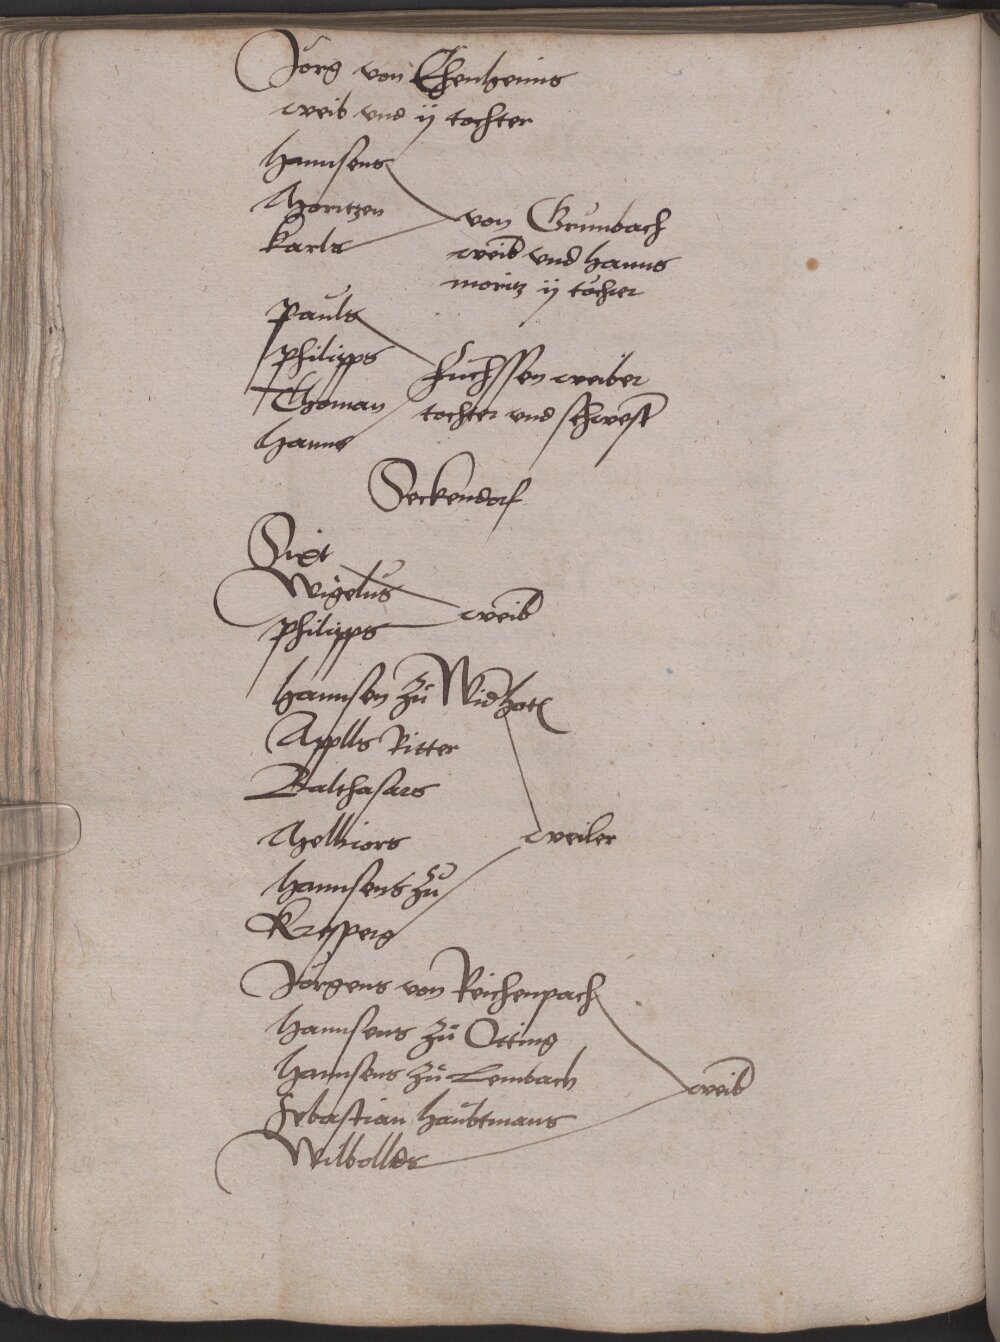 Jorg von Ehenheims
weib vnd ij tochter
Hannsens
Moritzen
Karls
von Grumbach
weib vnd Hanns
moritz ij tochter
Pauls
Philipps
Thoman
Hanns
Fuchssen weiber
tochter vnd schwest
Seckendorf
Sixt
Wigelus
Philipps
weib
Hannsen zu
Applls Ritter
Balthasars
Melkiors
Hannsens zu
Kresperg
weiber
Jorgens von Reichenpach
Hannsens zu Otting
Hannsens zu Lembach
Sebastian Haubtmans
Wilbollds
weib